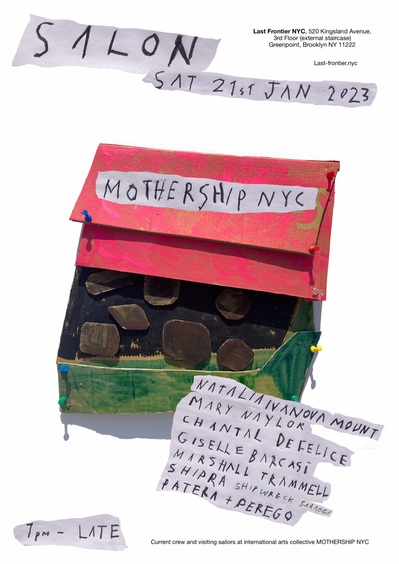 SALON
Last Frontier NYC, 520 Kingsland Avenue,
3rd Floor (external staircase)
Greenpoint, Brooklyn NY 11222
Last-frontier.nyc
SAT 21st JAN 2023
MOTHERSHIP NYC
NATALIAIVANOVA MOUNT
MARY NAYLOR
CHANTAL DEFELICE
GISELLE BARCASI
MARSHALL TRAMMELL
SHIPRA SHIPWRECK SARAOGI
PATERA + PEREGO
7pm - LATE
Current crew and visiting sailors at international arts collective MOTHERSHIP NYC